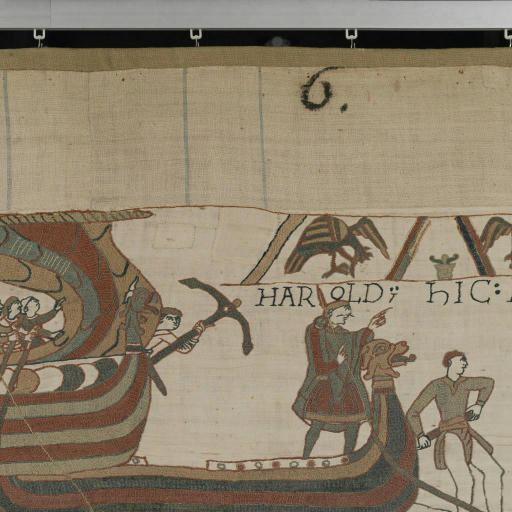 6.
HAROLD⁊ hIC: